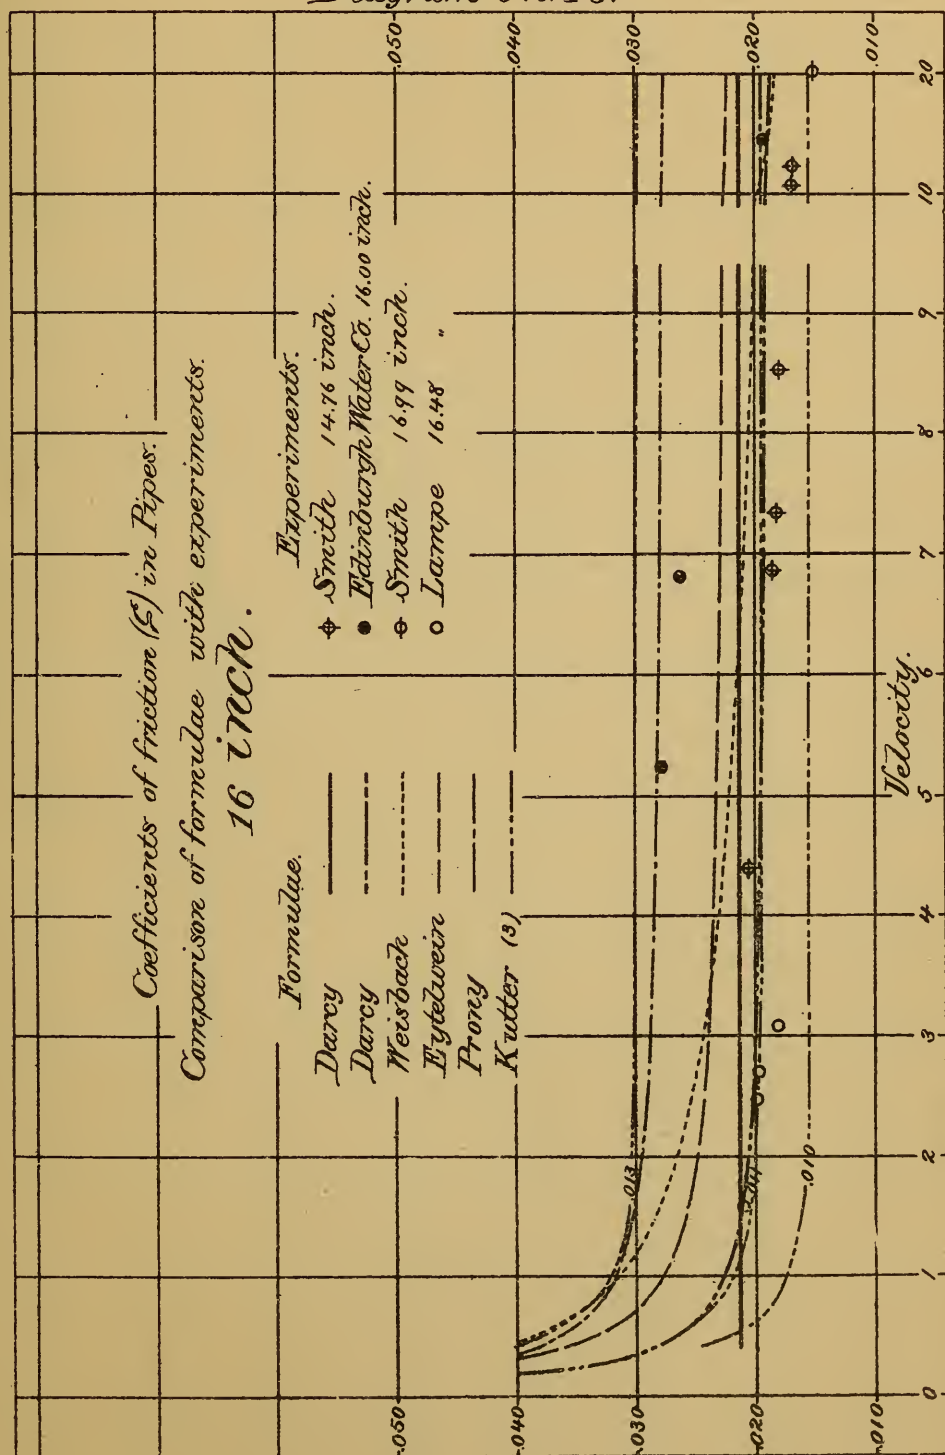 Coefficients of friction (ξ) in Pipes.
Comparison of formulae with experiments.
16 inch.
Formulae.
Darcy
Darcy
Weisbach
Eytelwein
Prony
Kutter (3)
Experiments.
Smith 14.76 inch.
Edinburgh Water Co. 16.00 inch.
Smith 16.99 inch.
Lampe 16.48 "
.050
.040
.030
.020
.010
.050
.040
.030
.020
.010
.013
.011
.010
0
1
2
3
4
5
6
7
8
9
10
20
Velocity.